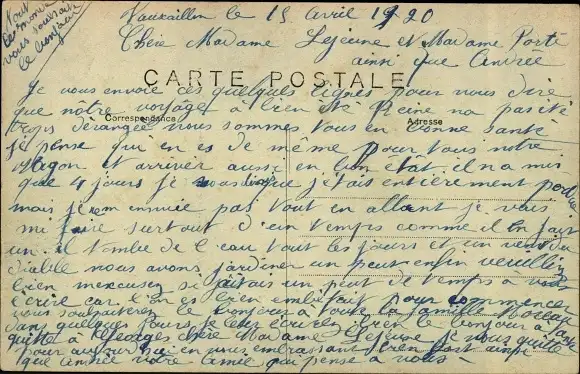 Tout
le monde
vous souhaite
le bonjour
Vauxaillon le 15 Avril 1920
Chère Madame Lejeune et Madame Porté
ainsi que Andrée
CARTE POSTALE
Correspondance
Adresse
Je vous envoie ces quelques lignes pour vous dire
que nôtre voyage à bien été Reine na pas été
trops dérangée nous sommes tous en bonne santé
je pense qui en es de même pour vous notre
Wagon et arriver aussi en bon état il na mis
que 4 jours je vous que jétais entièrement perdue
mais je men ennuie pas tout en allant je vais
me faire surtout d'un temps comme il en fait
un il tombe de l'eau tout les jours et un vent du
diable nous avons jardiner un peut enfin veuillez
bien mexcusez si jétais un peut de temps à vous
écrire car l'on es bien embêtait pour commencer
vous souhaiterez le bonjour à toute la famille Moreau
dans quelques jours je leur écrirez bien le bonjour à
à Georges chère Madame Lejeune je vous quitte
pour aujourd'hui en vous embrassant bien fort ainsi
que Andrée votre amie qui pense à vous